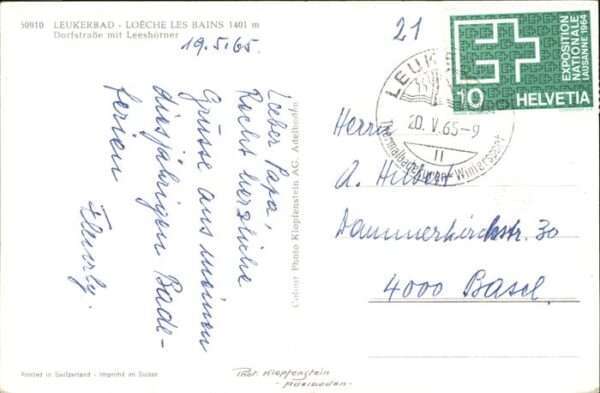 50910 LEUKERBAD - LOÈCHE LES BAINS 1401 m
Dorfstraße mit Leeshörner
19.5.65.
Lieber Papa,
Recht herzliche
Grüsse aus meinen
diesjährigen Bade-
ferien
Colour Photo Klopfenstein AG, Adelboden
21
LEUK
20. V. 65-9
11
Thermalbadekuren + Wintersport
10
HELVETIA
EXPOSITION
NATIONALE
LAUSANNE 1964
Herrn
A. Hilbert
Dammerkirchstr. 30
4000 Basel.
Printed in Switzerland - Imprimé en Suisse
Phot. Klopfenstein